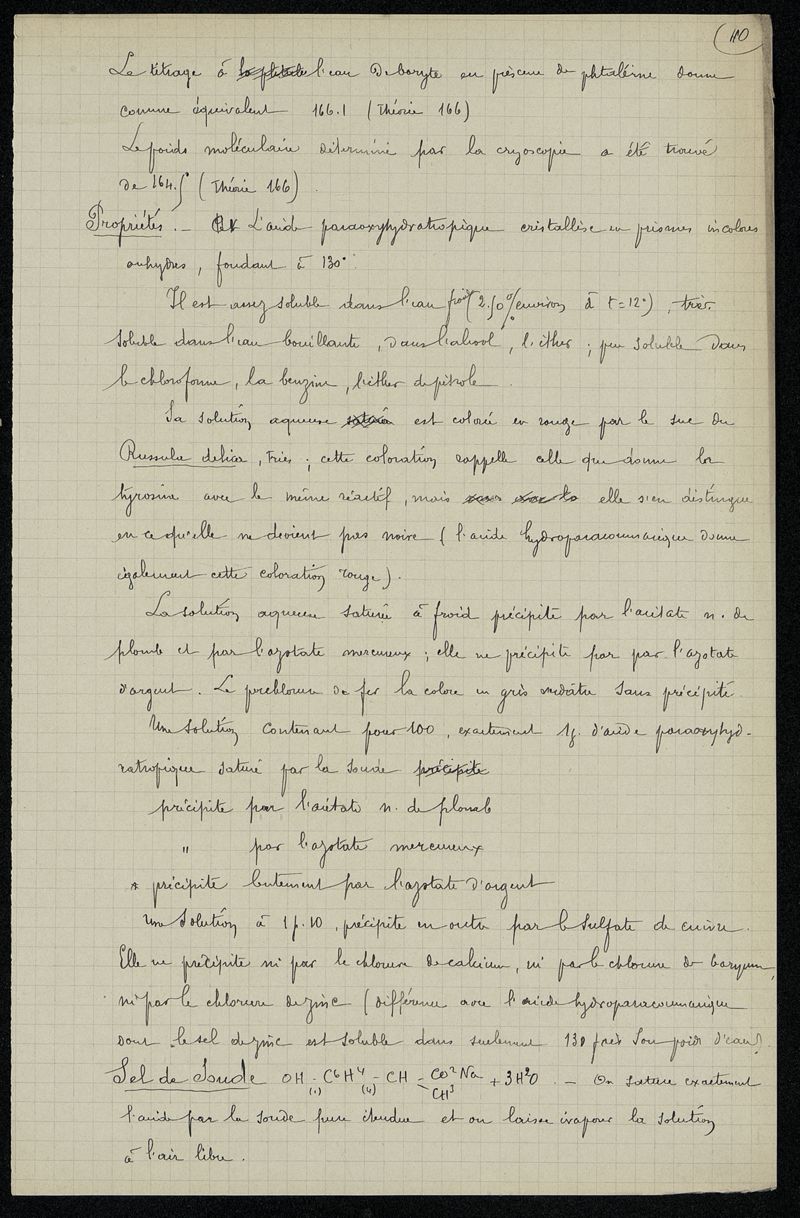 40
Le titrage à l'eau de baryte en présence de phtaléine donne
comme équivalent 166.1 (Théorie 166)
Le poids moléculaire déterminé par la cryoscopie a été trouvé
de 164.5 (Théorie 166).
Propriétés. - L'acide paraoxyhydratropique cristallise en prismes incolores
anhydres, fondant à 130°.
Il est assez soluble dans l'eau froide (2.50% environ à t=12°), très
soluble dans l'eau bouillante, dans l'alcool, l'éther ; peu soluble dans
le chloroforme, la benzine, l'éther de pétrole.
Sa solution aqueuse saturée est colorée en rouge par le suc du
Russula delica, Fries ; cette coloration rappelle celle que donne la
tyrosine avec le même réactif, mais elle s'en distingue
en ce qu'elle ne devient pas noire (l'acide hydroparacoumarique donne
également cette coloration rouge).
La solution aqueuse saturée à froid précipite par l'acétate n. de
plomb et par l'azotate mercureux ; elle ne précipite pas par l'azotate
d'argent. Le perchlorure de fer la colore en gris verdâtre sans précipité.
Une solution contenant pour 100, exactement 1g. d'acide paraoxyhyd-
ratropique saturé par la soude précipite
précipite par l'acétate n. de plomb
" par l'azotate mercureux
* précipite lentement par l'azotate d'argent
Une solution à 1 p. 10, précipite en outre par le sulfate de cuivre.
Elle ne précipite ni par le chlorure de calcium, ni par le chlorure de baryum,
ni par le chlorure de zinc (différence avec l'acide hydroparacoumarique
dont le sel de zinc est soluble dans seulement 130 fois son poids d'eau).
Sel de Soude OH - C6H4 - CH - CO2Na + 3H2O. - On sature exactement
(1) (4) CH3
l'acide par la soude pure étendue et on laisse évaporer la solution
à l'air libre.